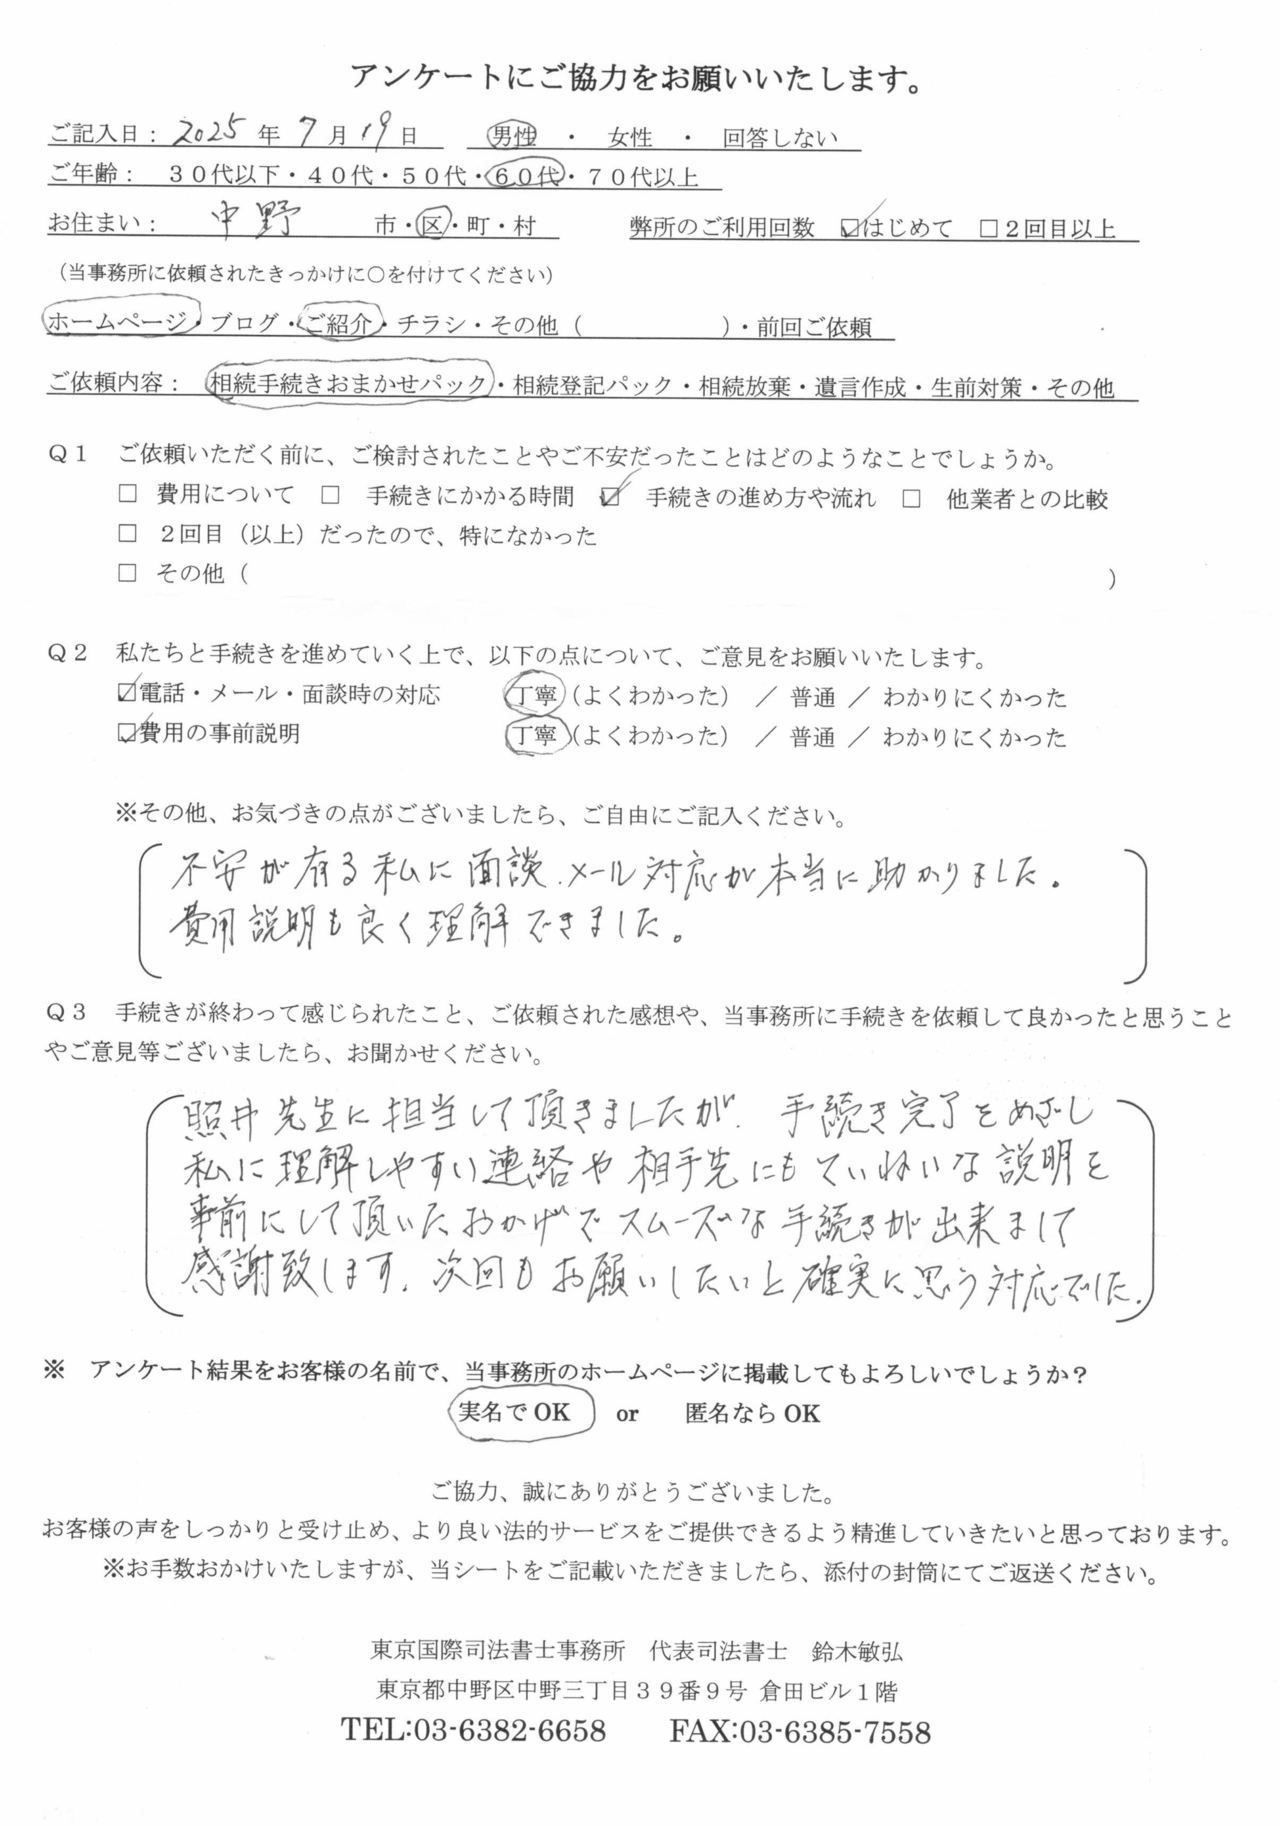 アンケートにご協力をお願いいたします。
ご記入日： 2025 年 7 月 19 日　男性 ・ 女性 ・ 回答しない
ご年齢： ３０代以下・４０代・５０代・６０代・７０代以上
お住まい： 中野 市・区・町・村　弊所のご利用回数 ☑はじめて □２回目以上
（当事務所に依頼されたきっかけに○を付けてください）
ホームページ・ブログ・ご紹介・チラシ・その他（　　　　　　）・前回ご依頼
ご依頼内容： 相続手続きおまかせパック・相続登記パック・相続放棄・遺言作成・生前対策・その他
Ｑ１　ご依頼いただく前に、ご検討されたことやご不安だったことはどのようなことでしょうか。
□ 費用について □ 手続きにかかる時間 ☑ 手続きの進め方や流れ □ 他業者との比較
□ ２回目（以上）だったので、特になかった
□ その他（　　　　　　）
Ｑ２　私たちと手続きを進めていく上で、以下の点について、ご意見をお願いいたします。
☑電話・メール・面談時の対応　丁寧（よくわかった） ／ 普通 ／ わかりにくかった
☑費用の事前説明　丁寧（よくわかった） ／ 普通 ／ わかりにくかった
※その他、お気づきの点がございましたら、ご自由にご記入ください。
不安が有る私に面談、メール対応が本当に助かりました。
費用説明も良く理解できました。
Ｑ３　手続きが終わって感じられたこと、ご依頼された感想や、当事務所に手続きを依頼して良かったと思うこと
やご意見等ございましたら、お聞かせください。
照井先生に担当して頂きましたが、手続き完了をめざし
私に理解しやすい連絡や相手先にもていねいな説明を
事前にして頂いたおかげでスムーズな手続きが出来まして
感謝致します。次回もお願いしたいと確実に思う対応でした。
※　アンケート結果をお客様の名前で、当事務所のホームページに掲載してもよろしいでしょうか？
実名で OK　or　匿名なら OK
ご協力、誠にありがとうございました。
お客様の声をしっかりと受け止め、より良い法的サービスをご提供できるよう精進していきたいと思っております。
※お手数おかけいたしますが、当シートをご記載いただきましたら、添付の封筒にてご返送ください。
東京国際司法書士事務所　代表司法書士　鈴木敏弘
東京都中野区中野三丁目３９番９号 倉田ビル１階
TEL:03-6382-6658　FAX:03-6385-7558